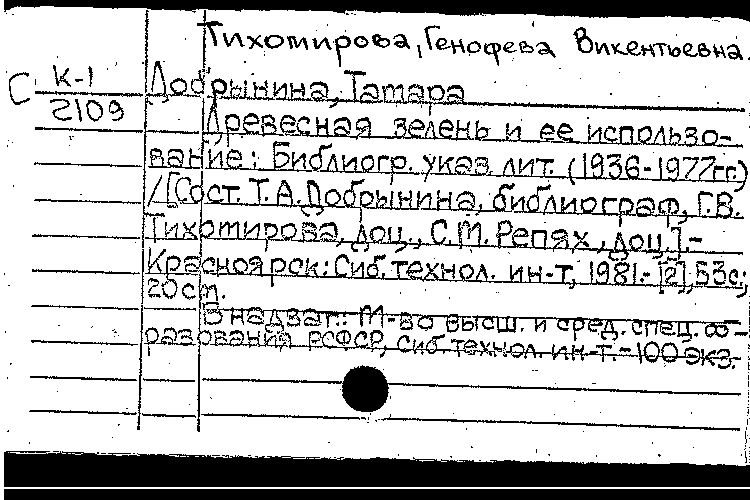 Тихомирова, Генофева Викентьевна.
С К-1 Добрынина, Тамара
2109
Древесная зелень и ее использо-
вание: Библиогр. указ. лит. (1936-1977гг.)
/[Сост. Т.А.Добрынина, библиограф, Г.В.
Тихомирова, доц., С.М. Репях, доц.].-
Красноярск: Сиб. технол. ин-т, 1981.- [2], 53с.;
20 см.
В надзаг.: М-во высш. и сред. спец. об-
разования РСФСР, Сиб. технол. ин-т.-100 экз.